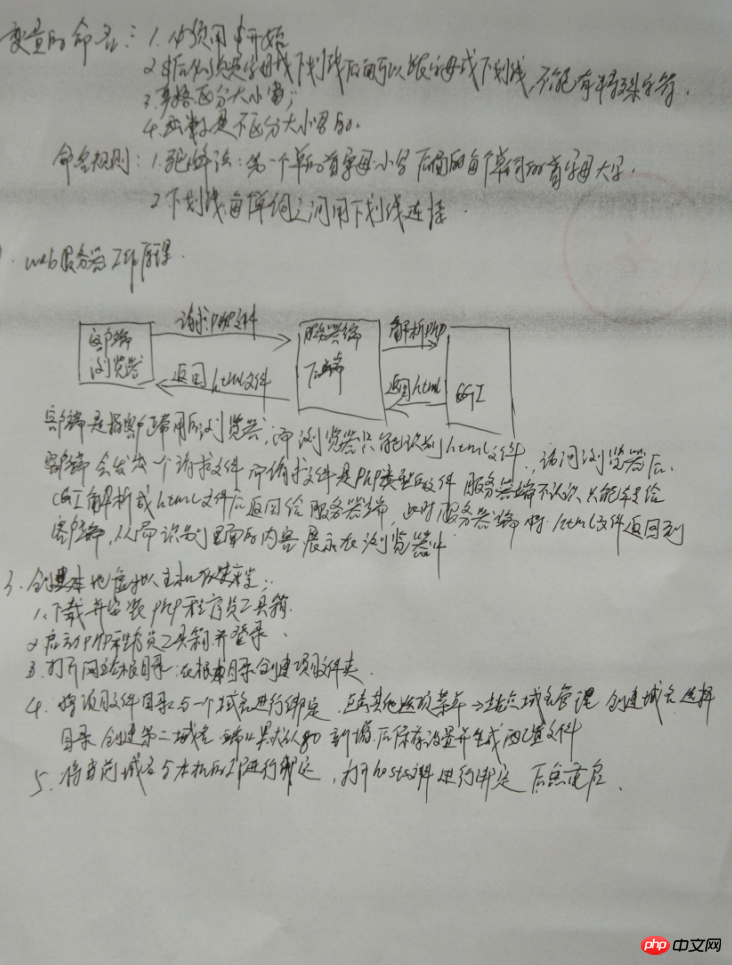 变量的命名: 1. 必须用$开始
2. $后必须是字母或下划线后面可以跟字母或下划线, 不能有特殊字符.
3. 严格区分大小写;
4. 函数是不区分大小写的.
命名规则: 1. 驼峰法: 第一个单的首字母小写 后面的每个单词的首字母大写.
2 下划线: 每单词之间用下划线连接.
web服务器工作原理.
请求PHP文件 解析PHP
客户端 浏览器 服务器端 后端 CGI
返回html文件 返回html
客户端是指客户正常用的浏览器, 而浏览器只能识别html文件, 访问浏览器后.
客户端会发出一个请求文件 而请求文件是PHP类型的文件 服务器端不认识 只能转给
CGI 解析成html文件后返回给服务器端, 此时服务器端将html文件返回到
客户端, 从而识别里面的内容 展示在浏览器中
3. 创建本地虚拟主机
1. 下载并安装PHP程序员工具箱.
2 启动PHP程序员工具箱并登录.
3. 打开网站根目录: 在根目录创建项目文件夹.
4. 将该文件目录与一个域名进行绑定 其他选项菜单→站点域名管理 创建域名选择
目录 创建第二域名 端口默认80 新增后保存设置并生成配置文件
5. 将当前域名与本机的IP进行绑定, 打开hosts文件进行绑定
php 中文网